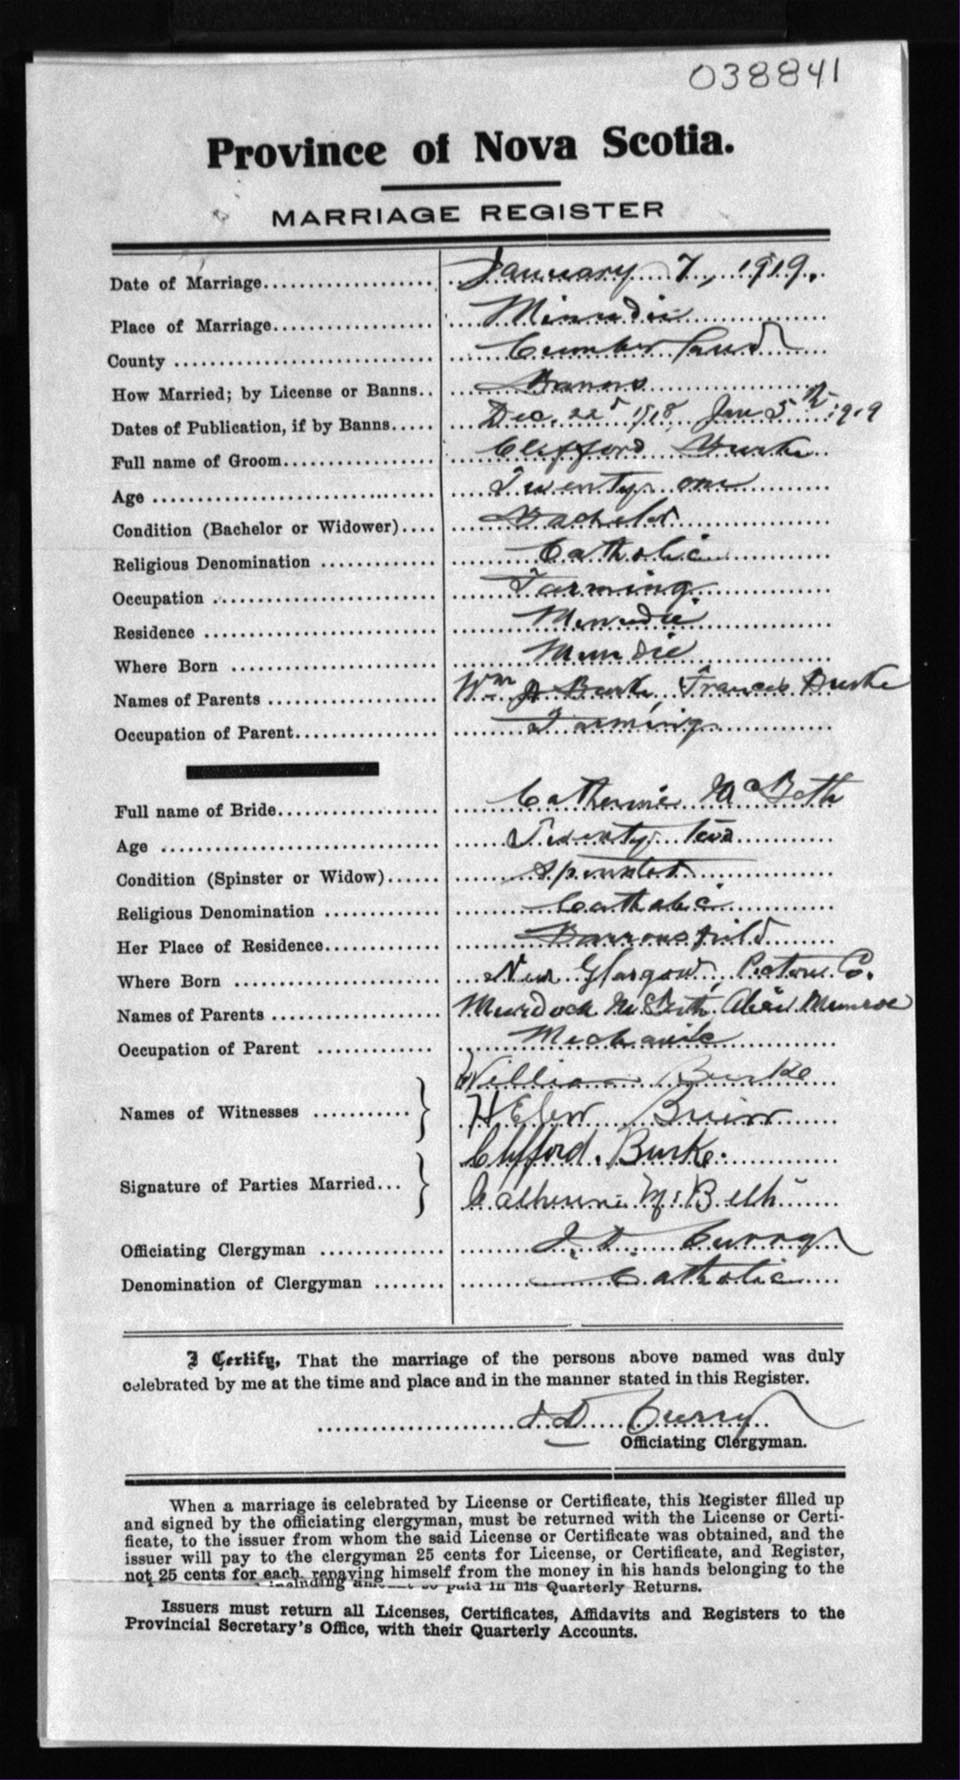 038841
Province of Nova Scotia.
MARRIAGE REGISTER
Date of Marriage.................... January 7, 1919.
Place of Marriage.................... Minudie
County .................... Cumberland
How Married; by License or Banns.. Banns
Dates of Publication, if by Banns..... Dec. 22d 1918, Jan 5th 1919
Full name of Groom.................... Clifford Burke
Age .................... Twenty one
Condition (Bachelor or Widower).... Bachelor
Religious Denomination .................... Catholic
Occupation .................... Farming
Residence .................... Minudie
Where Born .................... Minudie
Names of Parents .................... Wm Burke Frances Burke
Occupation of Parent.................... Farming
Full name of Bride.................... Catherine McBeth
Age .................... Twenty two
Condition (Spinster or Widow)...... Spinster
Religious Denomination .................... Catholic
Her Place of Residence.................... Barronsfield
Where Born .................... New Glasgow, Pictou Co.
Names of Parents .................... Murdock McBeth, Munroe
Occupation of Parent .................... Mechanic
Names of Witnesses ........... } William Burke
HElen
Signature of Parties Married... } Clifford. Burke.
Catherine Mc Beth
Officiating Clergyman .................... J. D. Curry
Denomination of Clergyman ........ Catholic
I Certify, That the marriage of the persons above named was duly
celebrated by me at the time and place and in the manner stated in this Register.
J D Curry
Officiating Clergyman.
When a marriage is celebrated by License or Certificate, this Register filled up
and signed by the officiating clergyman, must be returned with the License or Certi-
ficate, to the issuer from whom the said License or Certificate was obtained, and the
issuer will pay to the clergyman 25 cents for License, or Certificate, and Register,
not 25 cents for each, repaying himself from the money in his hands belonging to the
including so paid in his Quarterly Returns.
Issuers must return all Licenses, Certificates, Affidavits and Registers to the
Provincial Secretary's Office, with their Quarterly Accounts.